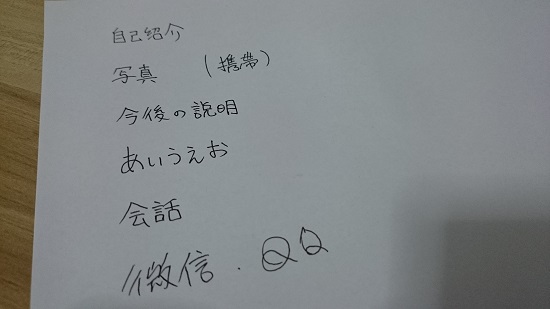 自己紹介
写真 (携帯)
今後の説明
あいうえお
会話
//微信.QQ